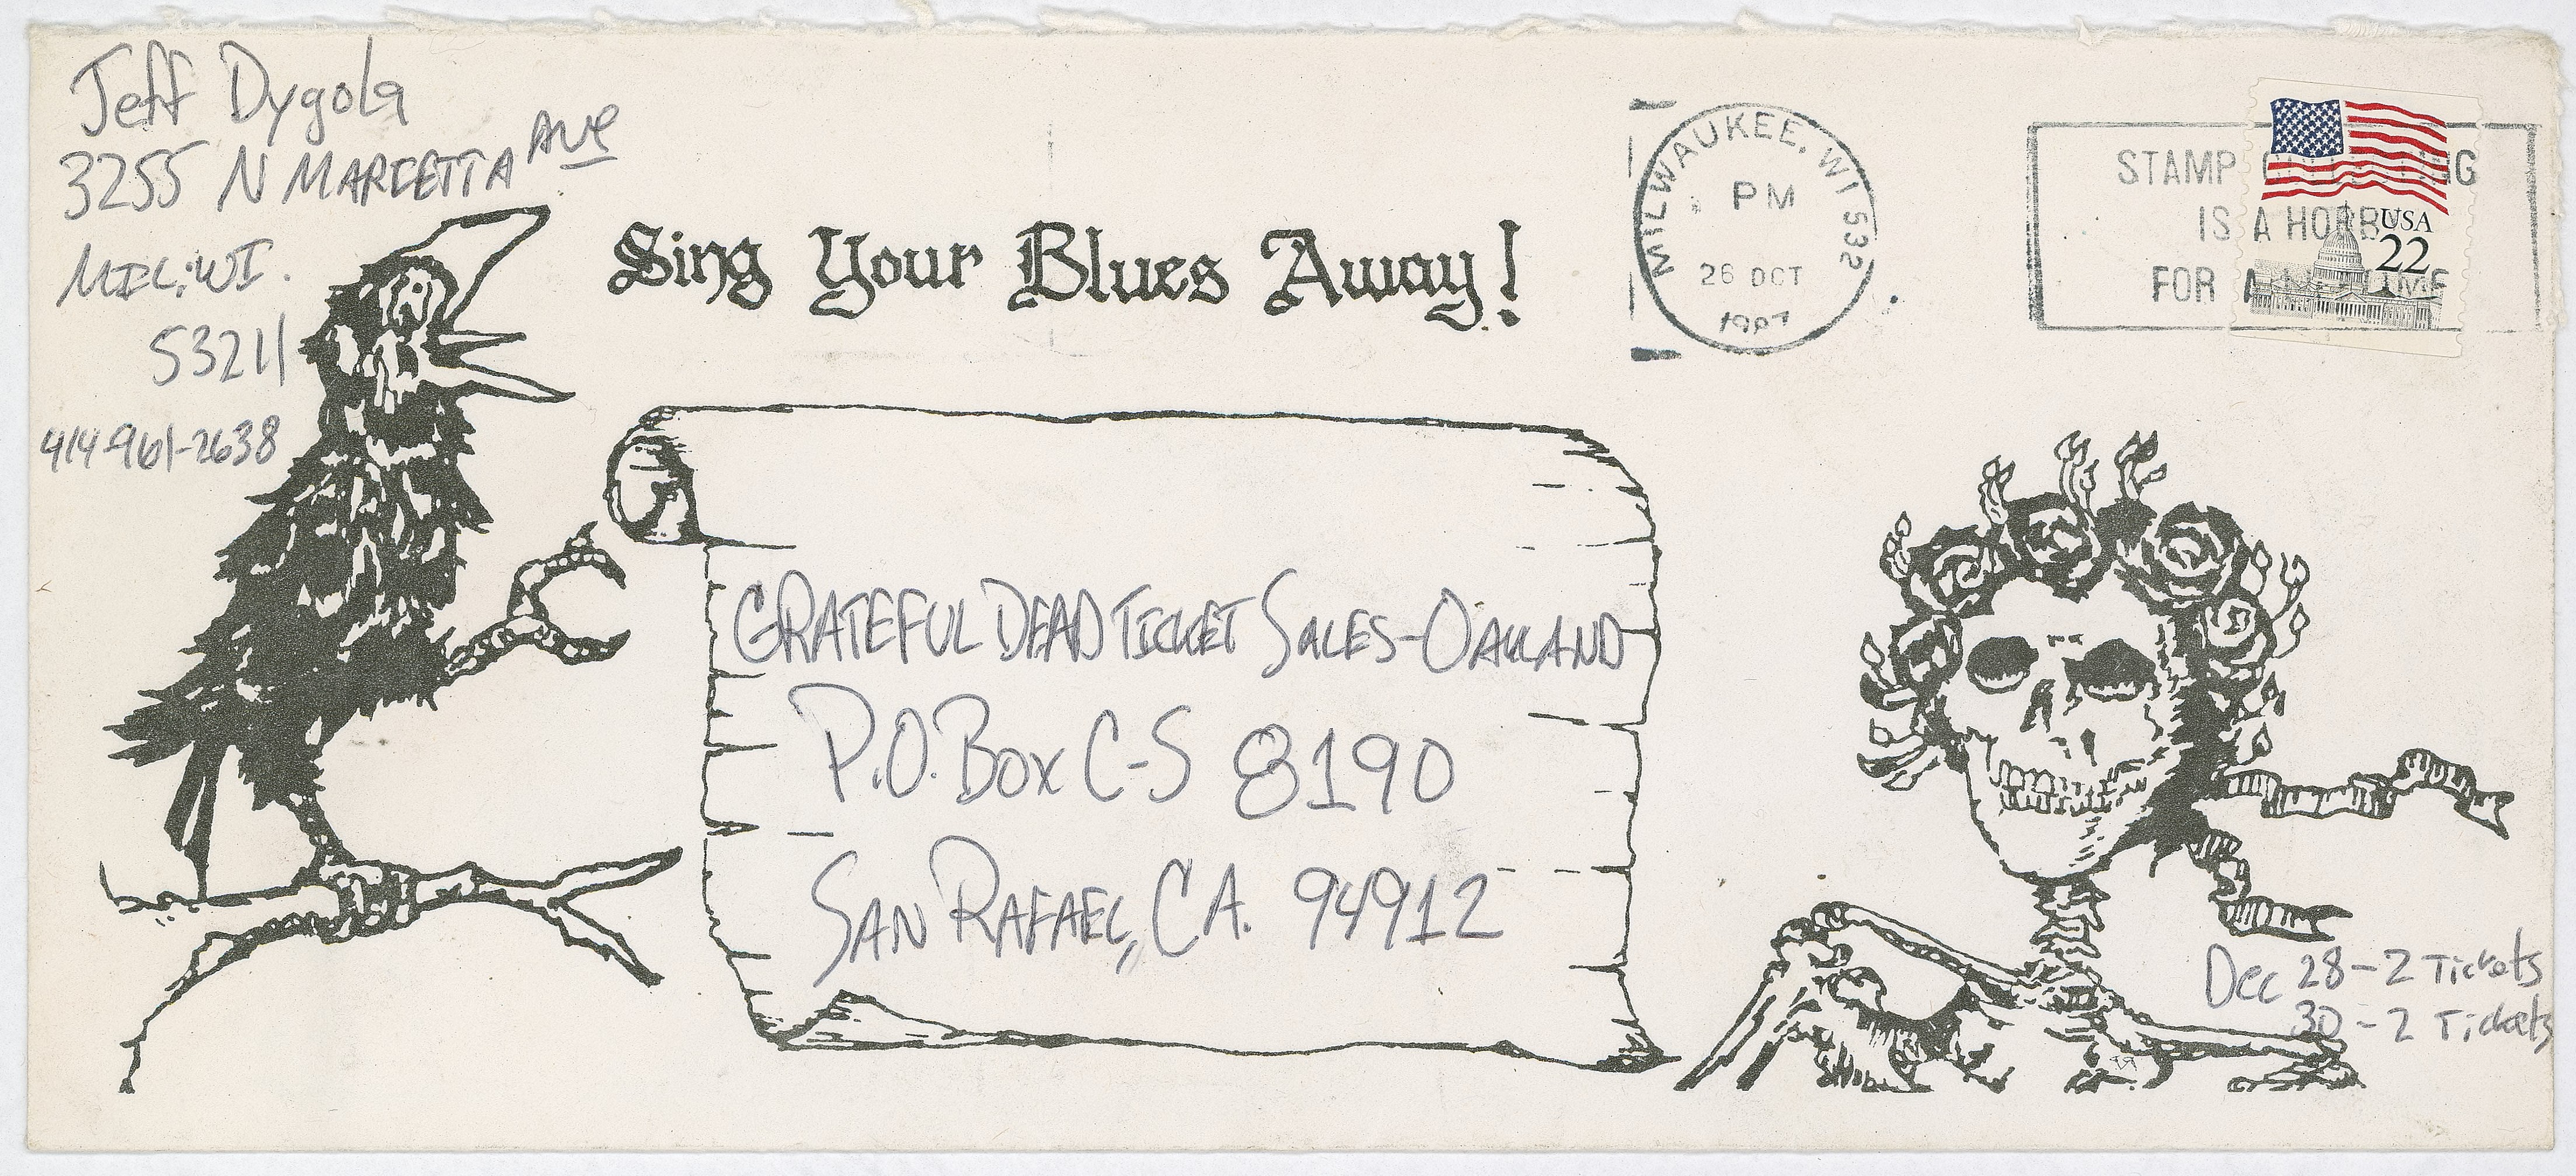 Jeff Dygola
3255 N MARIETTA AVE
MIL; WI.
53211
414-961-2638
Sing Your Blues Away!
MILWAUKEE, WI 532
PM
26 OCT
1987
STAMP
IS A HOBB
FOR A
USA
22
GRATEFUL DEAD TICKET SALES-OAKLAND
P.O. BOX C-S 8190
SAN RAFAEL, CA. 94912
Dec 28-2 Tickets
30-2 Tickets